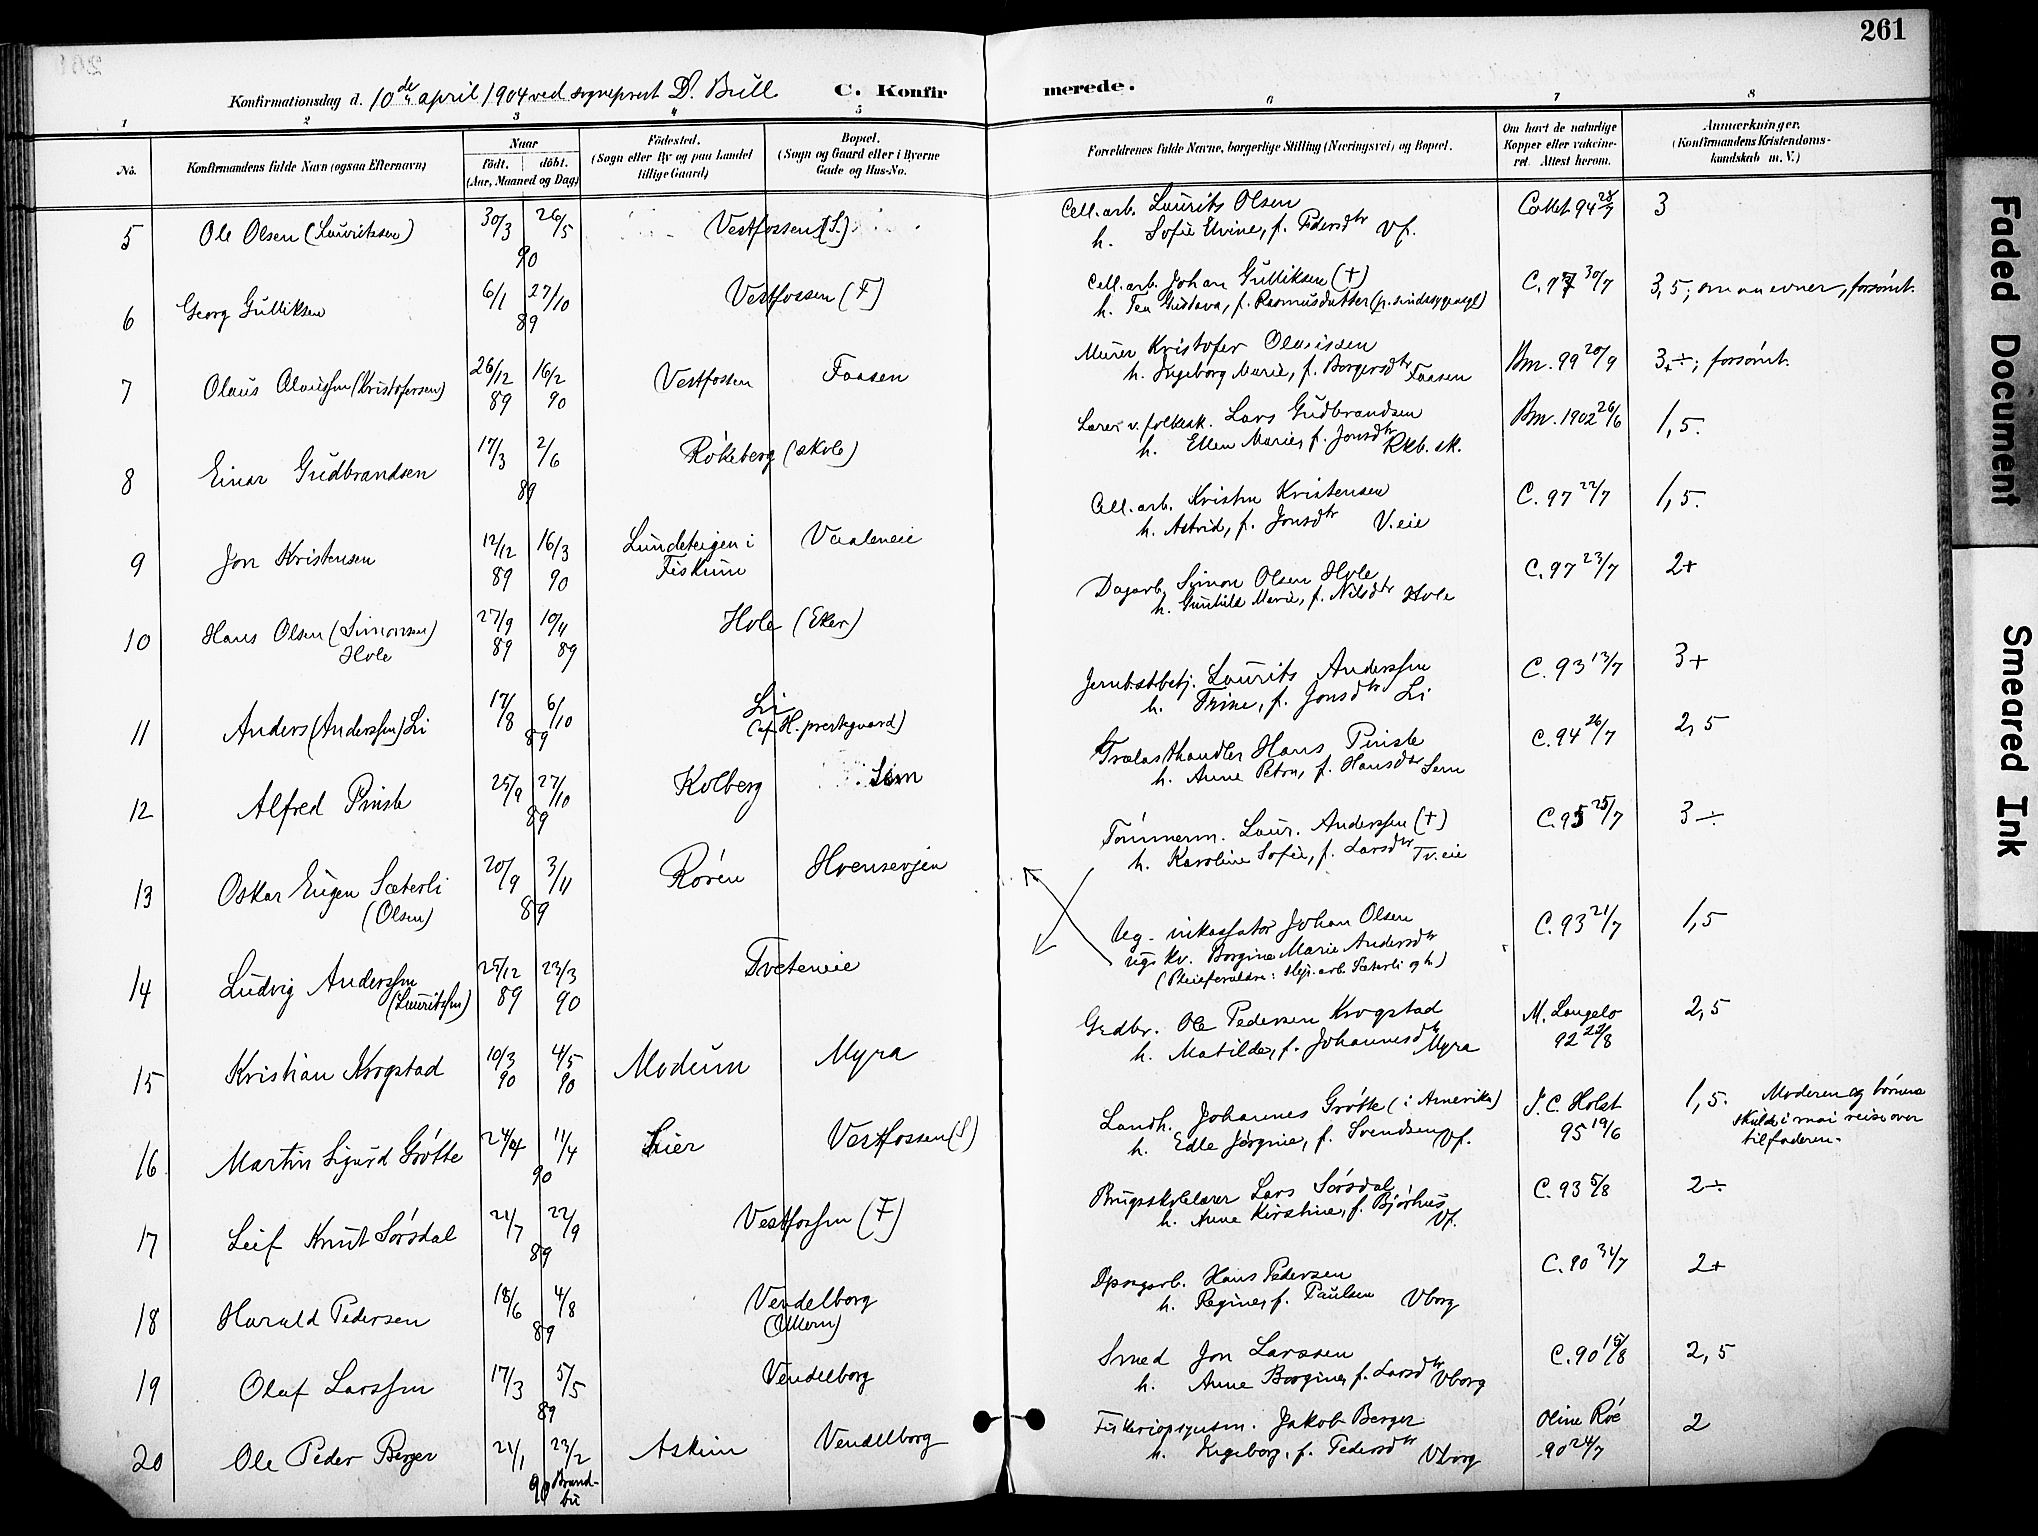 261
Konfirmationsdag d. 10de april 1904 ved sogneprest D. Bull
C. Konfirmerede.
1 2 3 4 5 6 7 8
No.
Konfirmandens fulde Navn (ogsaa Efternavn)
Naar
født. døbt.
(Aar, Maaned og Dag)
Fødested.
(Sogn eller By og paa Landet
tillige Gaard)
Bopæl.
(Sogn og Gaard eller i Byerne
Gade og Hus-No.
Forældrenes fulde Navne, borgerlige Stilling (Næringsvei) og Bopæl.
Om havt de naturlige
Kopper eller vakcine-
ret. Attest herom.
Anmærkninger.
(Konfirmandens Kristendoms-
kundskab m. V.)
5 Ole Olsen (Lauritsen) 30/3 26/5 90 Vestfossen (S.)
Cell.arb. Laurits Olsen
h. Sofie Elvine, f. Pedersdtr Vf.
94 28/7 3
6 Georg Gulliksen 6/1 27/10 89 Vestfossen (F)
Cell.arb. Johan Gulliksen (+)
h. Tea Gustava, f. Rasmusdatter (p. sindssygeasyl)
C. 97 30/7 3,5; evner, forsømt.
7 Olaus Olaussen (Kristofersen) 26/12 89 16/2 90 Vestfossen Faasen
Murer Kristofer Olausen
h. Ingeborg Marie, f. Borgersdtr Faasen
Bm. 99 20/9 3÷; forsømt.
8 Einar Gudbrandsen 17/3 2/6 89 Røkeberg (skole)
Lærer v. folkesk. Lars Gudbrandsen
h. Ellen Marie, f. Jonsdtr Rkb. sk.
Bm. 1902 26/6 1,5.
9 Jon Kristensen 12/12 89 16/3 90 Lundeteigen i
Fiskum Vaaleneie
Cell.arb. Kristen Kristensen
h. Astrid, f. Jonsdtr V.eie
C. 97 22/7 1,5.
10 Hans Olsen (Simonsen)
Hole 27/9 89 10/11 89 Hole (Eker)
Dagarb. Simon Olsen Hole
h. Gunhild Marie, f. Nilsdtr Hole
C. 97 23/7 2+
11 Anders (Anderssen) Li 17/8 6/10 89 Li
(af H. prestegaard)
Jernb.stbetj. Laurits Anderssen
h. Trine, f. Jonsdtr Li
C. 93 13/7 3+
12 Alfred Pruste 25/9 27/10 89 Kolberg Sem
Trælasthandler Hans Pruste
h. Anne Petra, f. Hansdtr Sem
C. 94 26/7 2,5
13 Oskar Eugen Sæterli
(Olsen) 20/9 3/11 89 Røren Hvensevjen
Tømmerm. Laur. Anderssen (+)
h. Karoline Sofie, f. Larsdtr Tv.eie
C. 95 25/7 3÷
14 Ludvig Anderssen
(Lauritssen) 25/12 89 23/3 90 Tveteneie
Ug. inkassator Johan Olsen
ugs kv. Borgine Marie Andersdtr
(Pleieforældre: Høj.arb. Sæterli og h.)
C. 93 21/7 1,5
15 Kristian Krogstad 10/3 90 4/5 90 Modum Myra
Grdbr. Ole Pedersen Krogstad
h. Matilde, f. Johannesdtr Myra
M. Langelo
92 22/8 2,5
16 Martin Sigurd Grøtte 24/1 11/4 90 Lier Vestfossen (S)
Landh. Johannes Grøtte (i Amerika)
h. Edle Jørgine, f. Svendsen Vf.
J. C. Holst
95 19/6 1,5. Moderen og børnene
skulde i mai reise over
til faderen.
17 Leif Knut Sørsdal 21/7 22/9 89 Vestfossen (F)
Brugsskolelærer Lars Sørsdal
h. Anne Kirstine, f. Bjørhus
Vf.
C. 93 5/8 2÷
18 Harald Pedersen 18/6 4/8 89 Vendelborg
Hans Pedersen
h. Regine, f. Paulsen Vborg
C. 90 31/7 2+
19 Olaf Larssen 17/3 5/5 89 Vendelborg
Smed Jon Larssen
h. Anne Borgine, f. Larsdtr Vborg
C. 90 15/8 2,5
20 Ole Peder Berger 21/1 23/2 90 Brand-
bu Askim Vendelborg
Fiskeriopsynsm. Jakob Berger
h. Ingeborg, f. Pedersdtr Vborg
Oline Roe
90 24/7 2
Faded Document
Smeared Ink